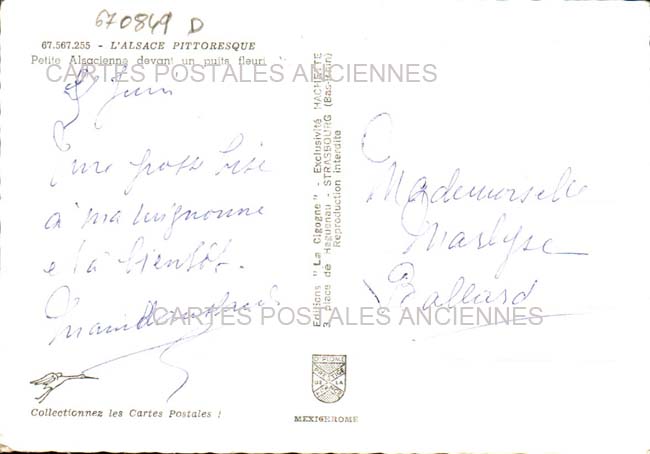 670849 D
67.567.255 - L'ALSACE PITTORESQUE
Petite Alsacienne devant un puits fleuri
CARTES POSTALES ANCIENNES
Juin
Une grosse bise
à ma mignonne
et à bientôt.
Editions "La Cigogne" - Exclusivité HACHETTE
3, place de Haguenau - STRASBOURG (Bas-Rhin)
Reproduction interdite
Mademoiselle
Marlyse
Ballard
CARTES POSTALES ANCIENNES
DIPLOME
DE LA
Collectionnez les Cartes Postales !
MEXICHROME